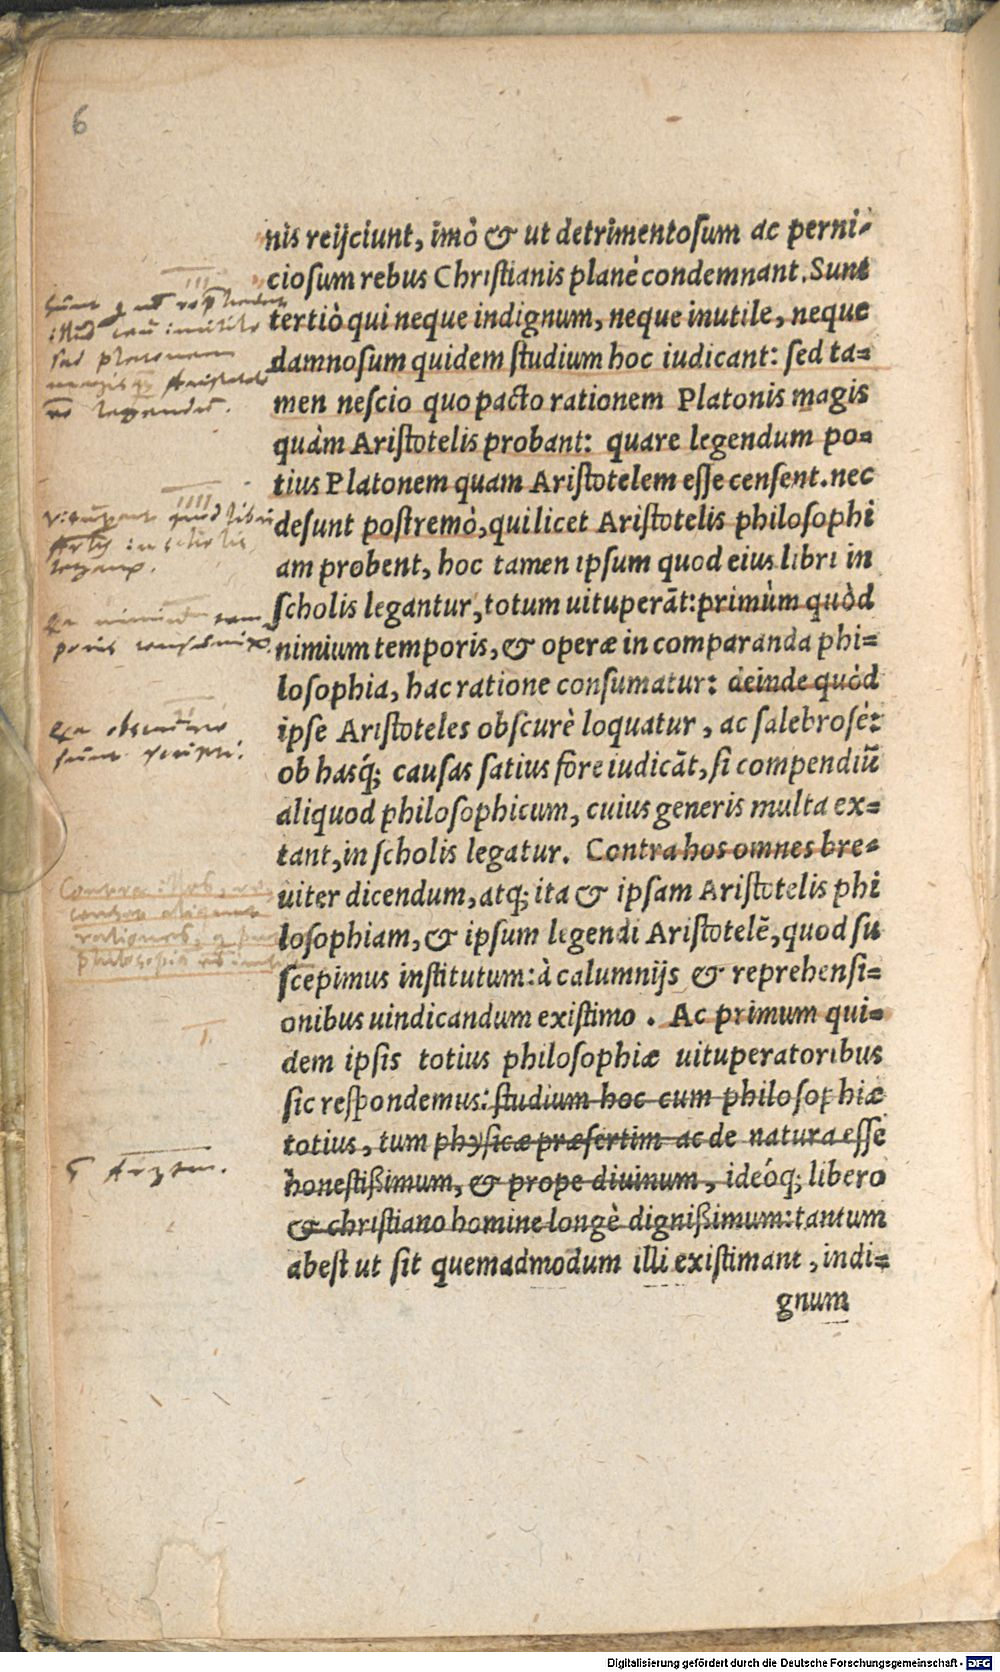 6
nis reijciunt, imò & ut detrimentosum ac perni-
ciosum rebus Christianis planè condemnant. Sunt
tertiò qui neque indignum, neque inutile, neque
damnosum quidem studium hoc iudicant: sed ta=
men nescio quo pacto rationem Platonis magis
quàm Aristotelis probant: quare legendum po=
tius Platonem quam Aristotelem esse censent. nec
desunt postremò, qui licet Aristotelis philosophi
am probent, hoc tamen ipsum quod eius libri in
scholis legantur, totum uituperāt: primùm quòd
nimium temporis, & operæ in comparanda phi=
losophia, hac ratione consumatur: deinde quòd
ipse Aristoteles obscurè loquatur, ac salebrosè:
ob hasq́; causas satius fore iudicāt, si compendiū
aliquod philosophicum, cuius generis multa ex=
tant, in scholis legatur. Contra hos omnes bre-
uiter dicendum, atq; ita & ipsam Aristotelis phi
losophiam, & ipsum legendi Aristotelē, quod su
scepimus institutum: à calumnijs & reprehensi=
onibus uindicandum existimo. Ac primum qui=
dem ipsis totius philosophiæ uituperatoribus
sic respondemus: studium hoc cum philosophiæ
totius, tum physicæ præsertim ac de natura esse
honestißimum, & prope diuinum, ideóq; libero
& christiano homine longè dignißimum: tantum
abest ut sit quemadmodum illi existimant, indi=
gnum
III
sed platonem
magis
legendū.
IIII
obscuriores
sunt
Contra illos,
rationes,
philosophia
I.
Digitalisierung gefördert durch die Deutsche Forschungsgemeinschaft - DFG